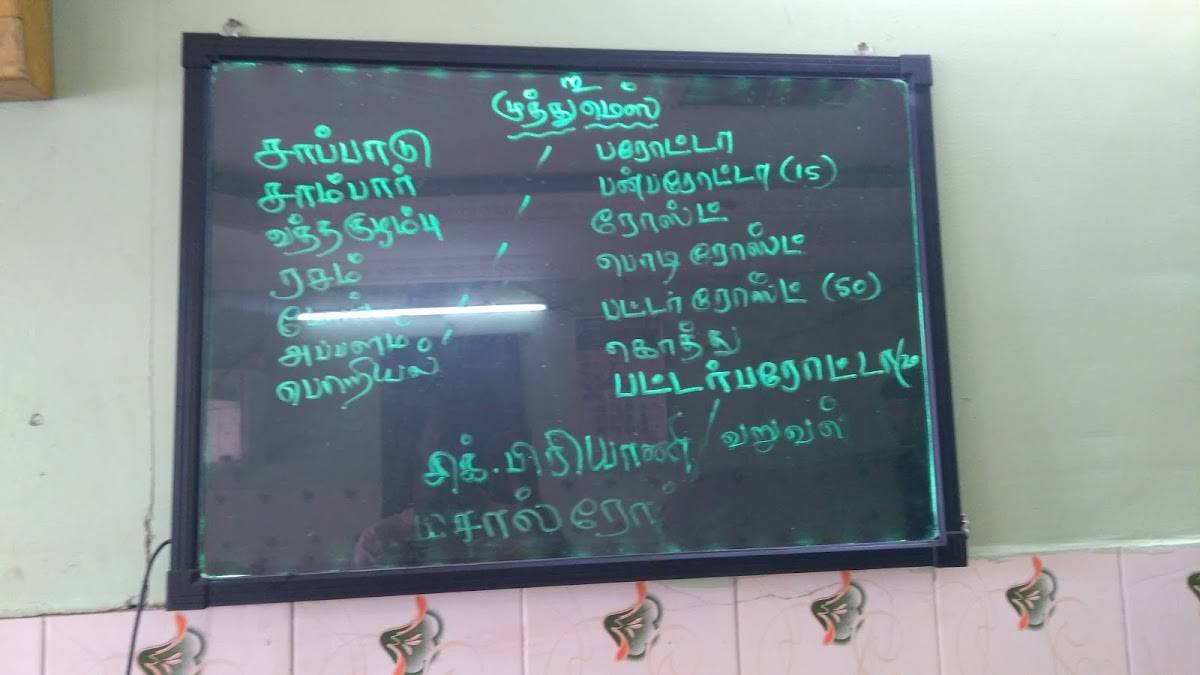 உ
முத்து மெஸ்
சாப்பாடு
சாம்பார்
வத்தகுழம்பு
ரசம்
அப்பளம்
பொறியல்
பரோட்டா
பன்பரோட்டா (15)
ரோஸ்ட்
பொடி ரோஸ்ட்
பட்டர் ரோஸ்ட் (50)
கொத்து
பட்டர்பரோட்டா
சிக்.பிரியாணி / வறுவல்